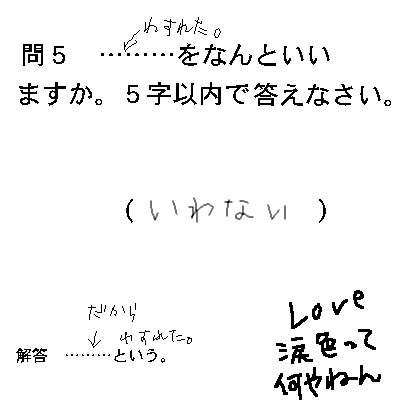 わすれた。
問5 ………をなんといい
ますか。5字以内で答えなさい。
(いわない)
だから
わすれた。
解答 ………という。
Love
涙色って
何やねん